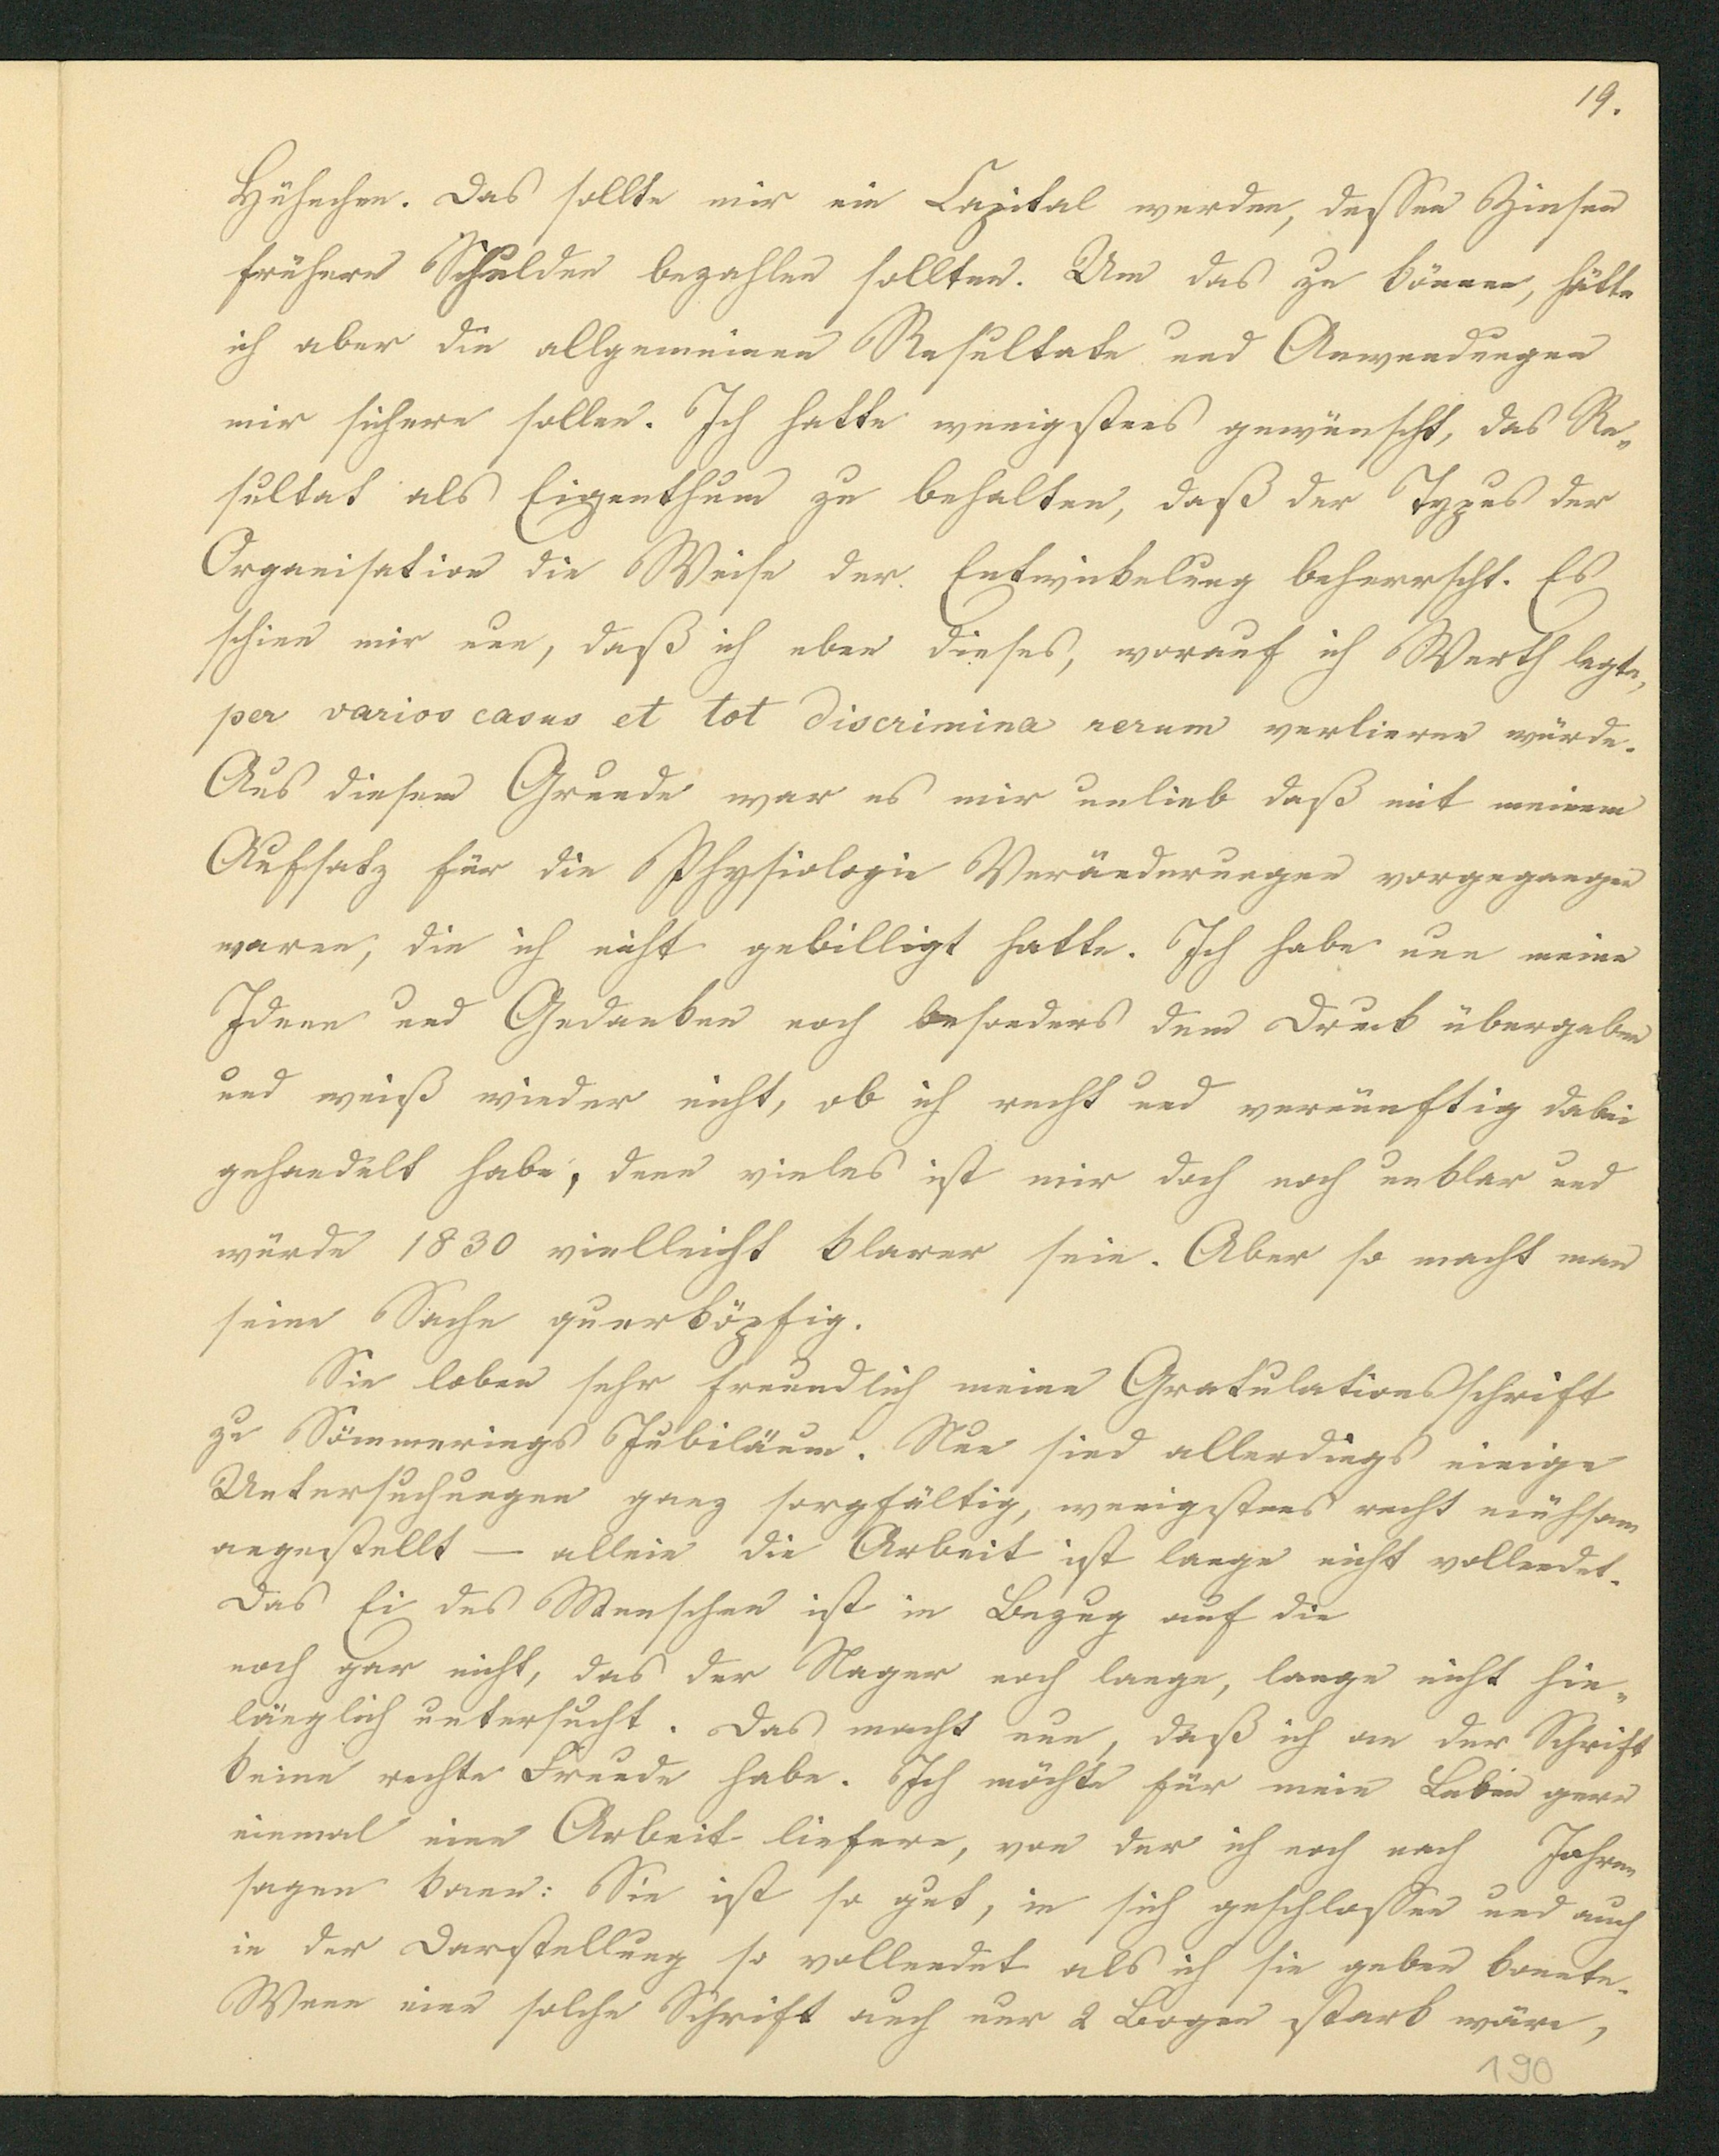 19.
Hühnchen. Das sollte mir ein Capital werden, dessen Zinsen
frühere Schulden bezahlen sollten. Um das zu können, hätte
ich aber die allgemeinen Resultate und Anwendungen
mir sichern sollen. Ich hatte wenigstens gewünscht, das Re-
sultat als Eigenthum zu behalten, daß der Typus der
Organisation die Weise der Entwickelung beherrscht. Es
schien mir nun, daß ich eben dieses, worauf ich Werth legte,
per varios casus et tot discrimina rerum verlieren würde.
Aus diesem Grunde war es mir unlieb daß mit meinem
Aufsatz für die Physiologie Veränderungen vorgegangen
waren, die ich nicht gebilligt hatte. Ich habe nun meine
Ideen und Gedanken noch besonders dem Druck übergeben
und weiß wieder nicht, ob ich recht und vernünftig dabei
gehandelt habe, denn vieles ist mir doch noch unklar und
würde 1830 vielleicht klarer sein. Aber so macht man
seine Sache querköpfig.
Sie loben sehr freundlich meine Gratulationsschrift
zu Sömmerings Jubiläum. Nun sind allerdings einige
Untersuchungen ganz sorgfältig, wenigstens recht mühsam
angestellt — allein die Arbeit ist lange nicht vollendet.
Das Ei des Menschen ist in Bezug auf die
noch gar nicht, das der Nager noch lange, lange nicht hin-
länglich untersucht. Das macht nun, daß ich an der Schrift
keine rechte Freude habe. Ich möchte für mein Leben gern
einmal eine Arbeit liefern, von der ich noch nach Jahren
sagen kann: Sie ist so gut, in sich geschlossen und auch
in der Darstellung so vollendet als ich sie geben konnte.
Wenn eine solche Schrift auch nur 2 Bogen stark wäre,
190